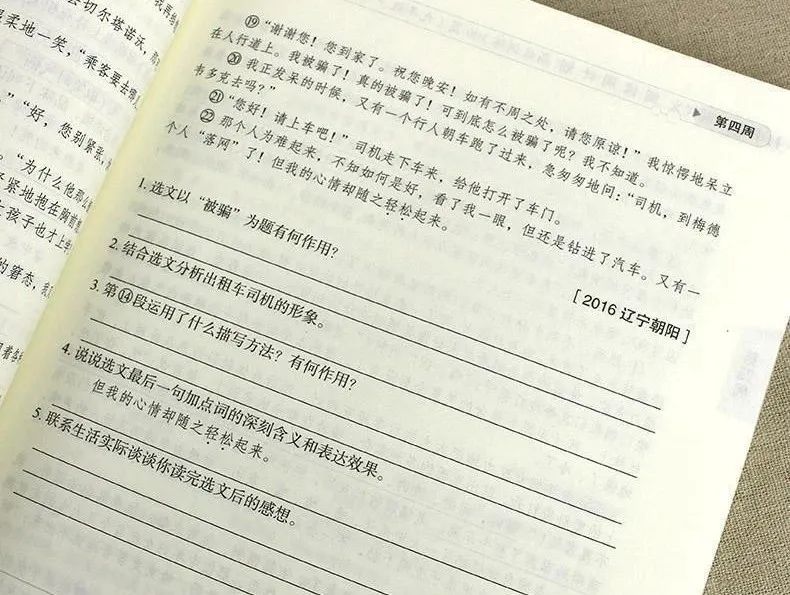 会切尔塔诺沃，
柔地一笑，“乘客要去哪
”“好，您别紧张，
“为什么他那么
紧地抱在胸前
孩子也才上
的窘态，我
第四周
⑲“谢谢您！您到家了。祝您晚安！如有不周之处，请您原谅！”我惊愕地呆立
在人行道上。我被骗了！真的被骗了！可到底怎么被骗了呢？我不知道。
⑳ 我正发呆的时候，又有一个行人朝车跑了过来，急匆匆地问：“司机，到梅德
韦多克去吗？”
㉑“您好！请上车吧！”司机走下车来，给他打开了车门。
㉒ 那个人为难起来，不知如何是好，看了我一眼，但还是钻进了汽车。又有一
个人“落网”了！但我的心情却随之轻松起来。
[2016辽宁朝阳]
1. 选文以“被骗”为题有何作用？
2. 结合选文分析出租车司机的形象。
3. 第⑭段运用了什么描写方法？有何作用？
4. 说说选文最后一句加点词的深刻含义和表达效果。
但我的心情却随之轻松起来。
5. 联系生活实际谈谈你读完选文后的感想。